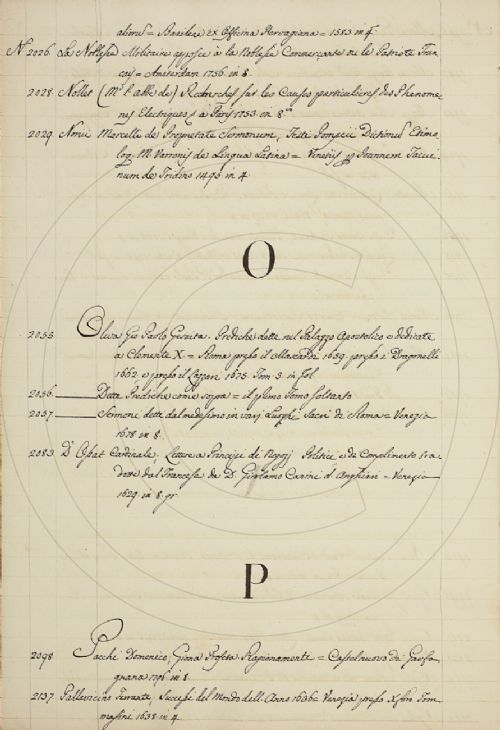 alium = Basileæ ex Officina Hervagiana = 1553 in 4
N. 2026. La Noblesse Militaire opposée à la Noblesse Commerçante ou le Patriote Fran
cois = Amsterdam 1756 in 8
2028. Nollet (Mr. l'abbé de) Recherches sur les Causes particulieres des Phenome
nes Electriques = à Paris 1753. in 8.
2029. Nonii Marcelli de Proprietate Sermonum, Festi Pompeii Dictionum Etimo
log. M. Varronis de Lingua Latina = Venetiis per Joannem Tacui
num de Tridino 1496 in 4
O
Oliva Gio Paolo Gesuita. Prediche dette nel Palazzo Apostolico e dedicate
a Clemente X. = Roma presso il Mascardi 1659. presso i Dragonelli
1662. e presso il Lazzari 1675. Tom 3. in fol.
2056. Dette Prediche come sopra = il primo Tomo soltanto
2057. Sermoni dette dal medesimo in varj Luoghi Sacri di Roma = Venezia
1678 in 8.
2083. D'Ossat Cardinale. Lettere a Principi di Negozj Politici e di Complimento tra
dotte dal Francese da D. Girolamo Canini d'Anghiari = Venezia
1629. in 8. gr
P
2098. Pacchi Domenico, Giona Profeta Ragionamenti = Castelnuovo di Garfa
gnana 1796 in 8
2137. Pallavicino Ferrante, Successi del Mondo dell'Anno 1636 = Venezia presso Xforo Tom
masini 1638 in 4.